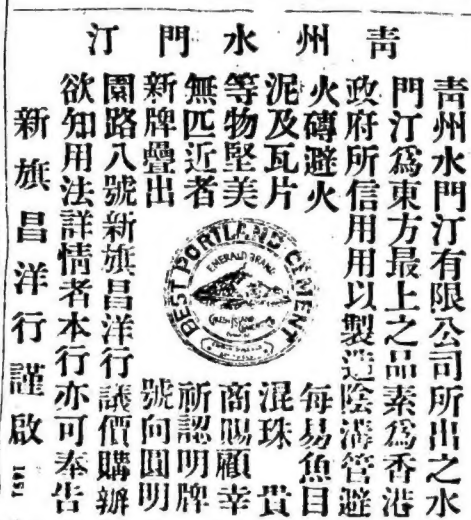 青州水門汀
青州水門汀有限公司所出之水
門汀爲東方最上之品素爲香港
政府所信用用以製造陰溝管避
火磚避火
泥及瓦片
等物堅美
無匹近者
新牌疊出
每易魚目
混珠 貴
商賜顧幸
祈認明牌
號向圓明
園路八號新旗昌洋行議價購辦
欲知用法詳情者本行亦可奉告
新旗昌洋行謹啟
BEST PORTLAND CEMENT
EMERALD BRAND
GREEN ISLAND